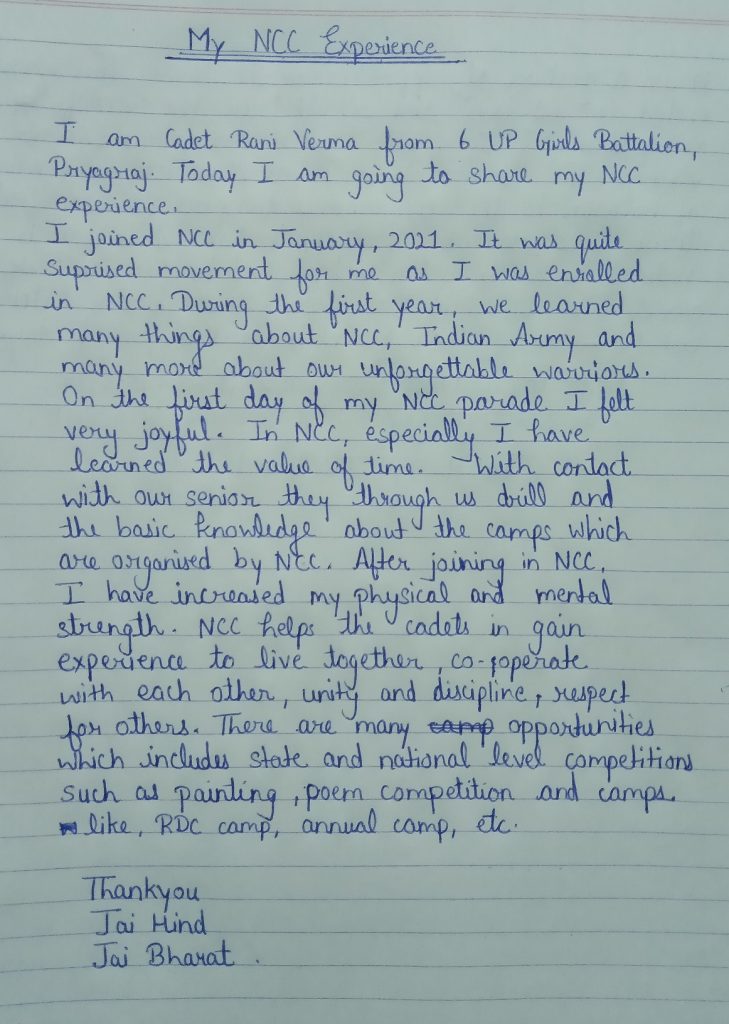 My NCC Experience
I am Cadet Rani Verma from 6 UP Girls Battalion,
Pryagraj. Today I am going to share my NCC
experience.
I joined NCC in January, 2021. It was quite
suprised movement for me as I was enrolled
in NCC. During the first year, we learned
many things about NCC, Indian Army and
many more about our unforgettable warriors.
On the first day of my NCC parade I felt
very joyful. In NCC, especially I have
learned the value of time. With contact
with our senior they through us drill and
the basic knowledge about the camps which
are organised by NCC. After joining in NCC,
I have increased my physical and mental
strength. NCC helps the cadets in gain
experience to live together, co-operate
with each other, unity and discipline, respect
for others. There are many camp opportunities
which includes state and national level competitions
such as painting, poem competition and camps
like, RDC camp, annual camp, etc.
Thankyou
Jai Hind
Jai Bharat.